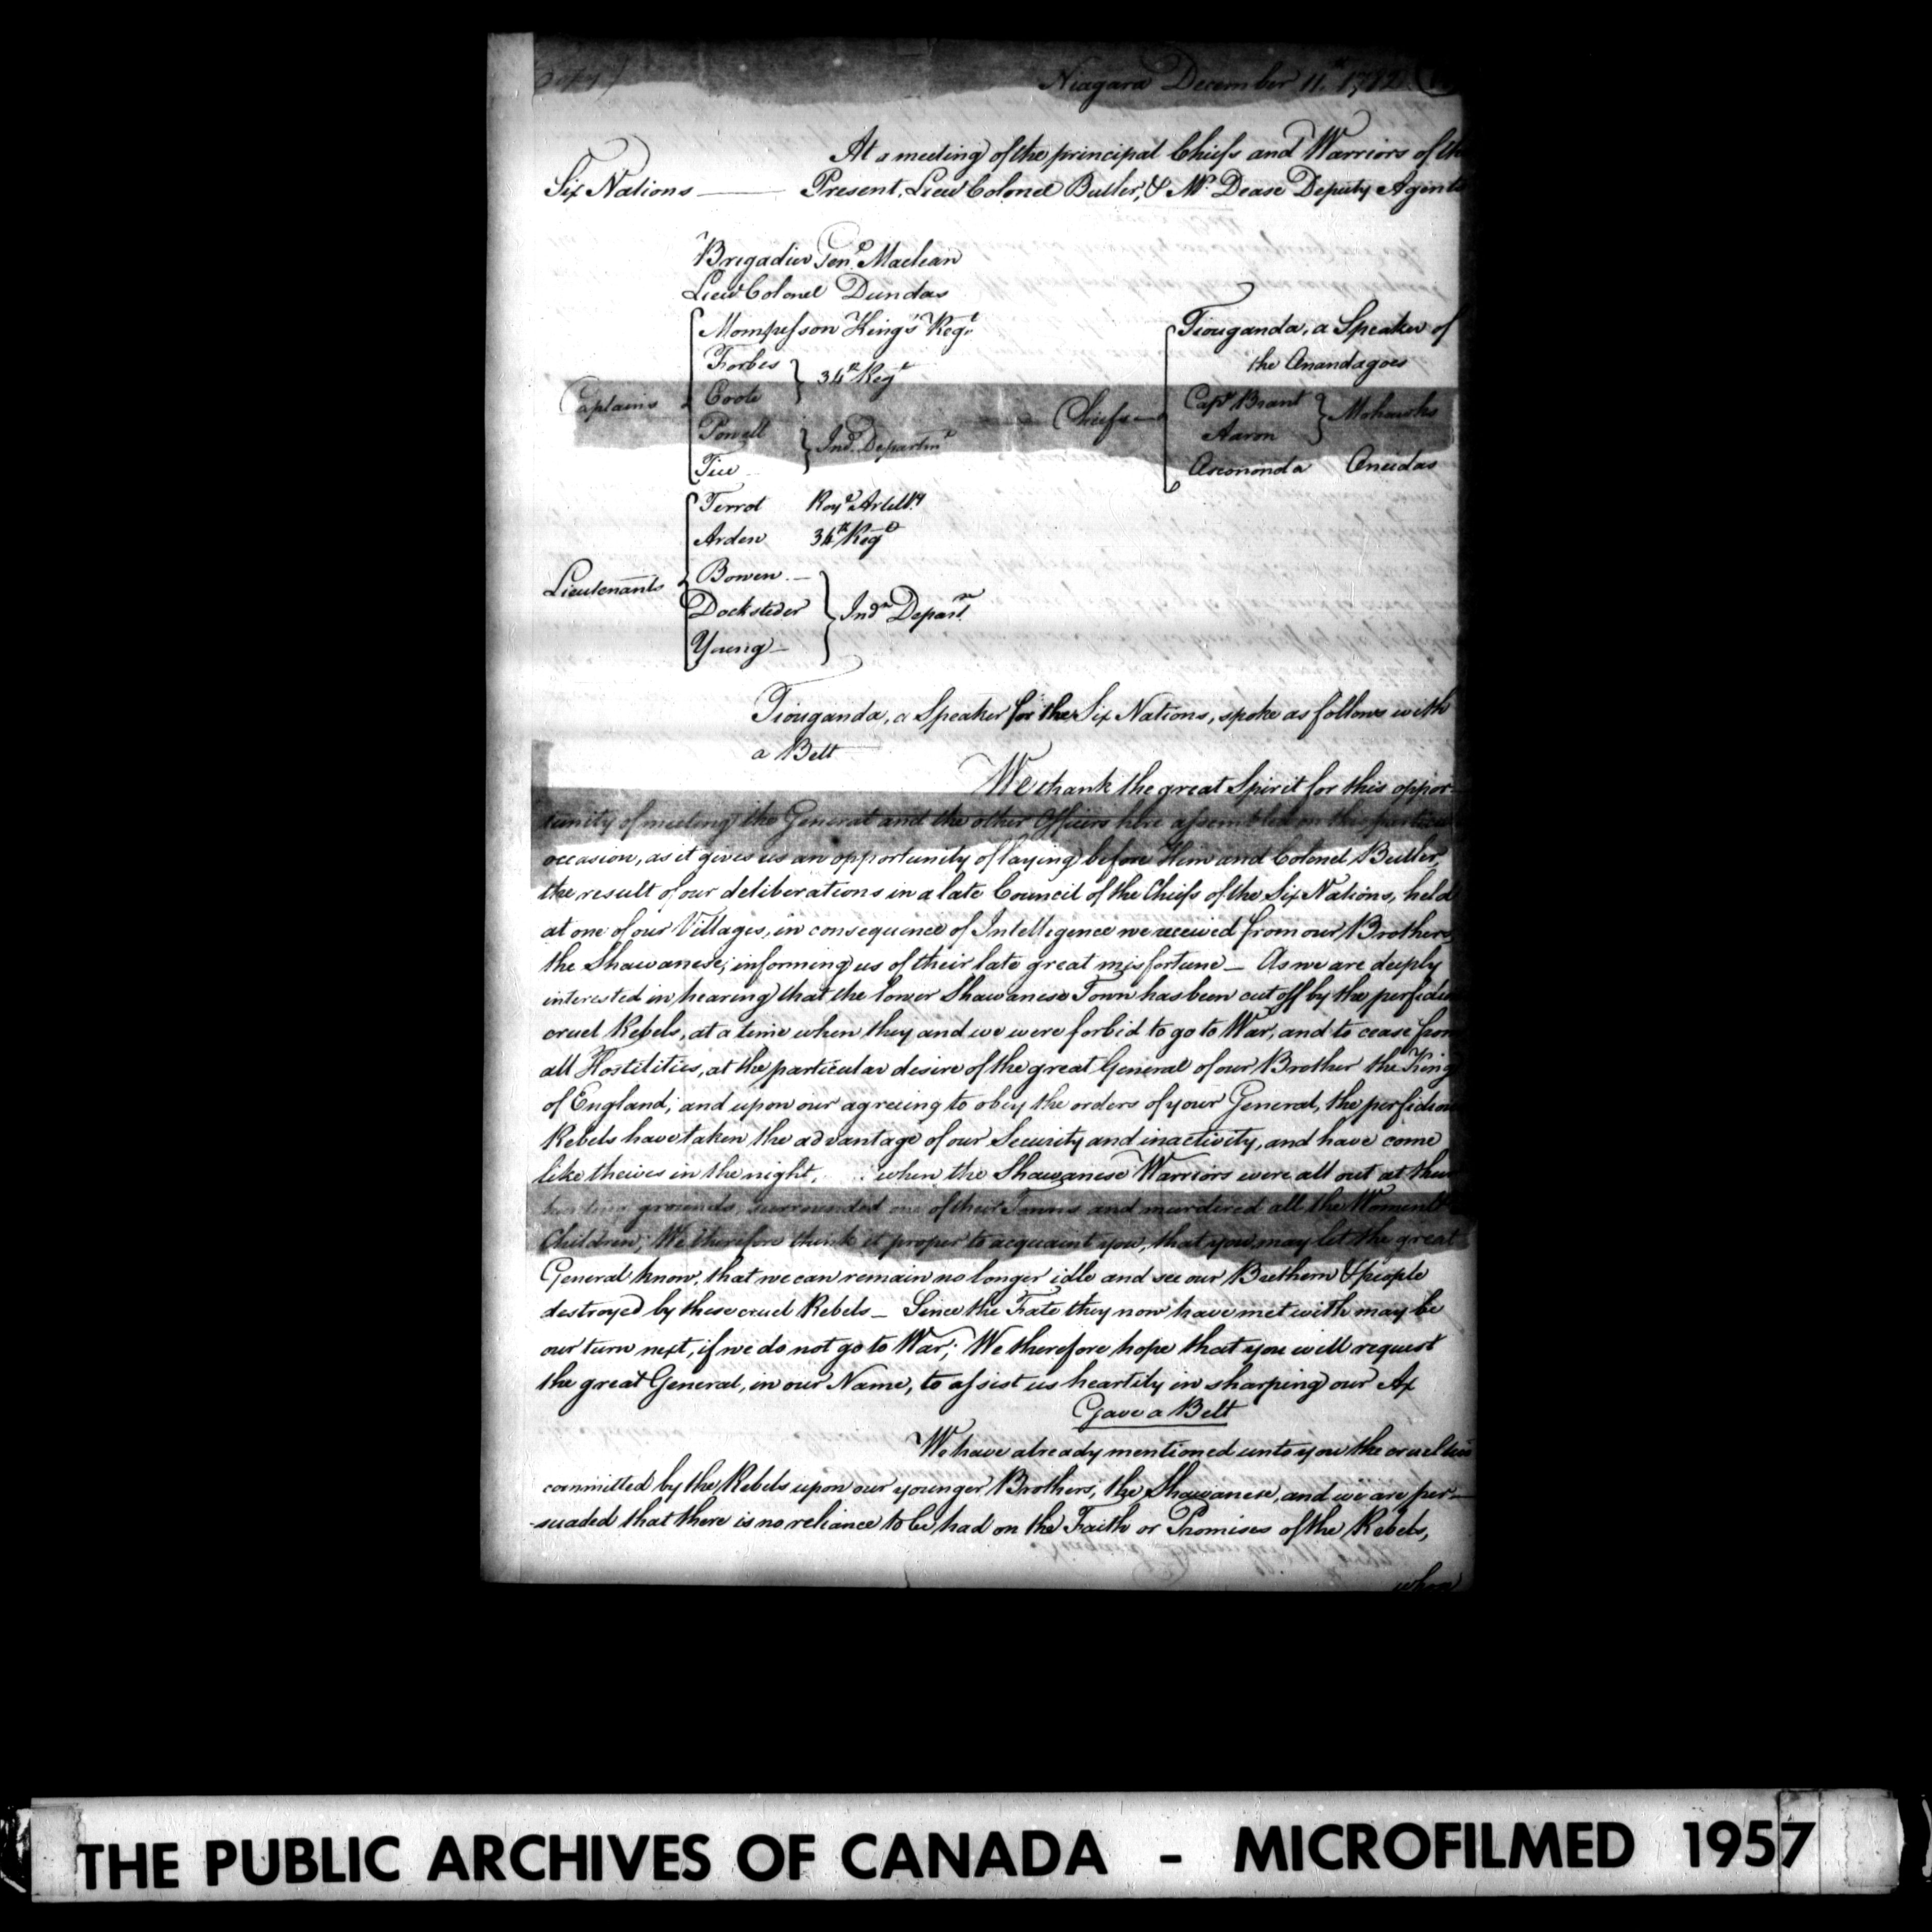 (Copy)
Niagara December 11th 1782
At a meeting of the principal Chiefs and Warriors of the
Six Nations — Present, Lieut Colonel Butler, & Mr. Dease Deputy Agents
Brigadier Genl. Maclean
Lieut Colonel Dundas
Captains
Mompesson King's Regt.
Forbes
Coote
34th Regt
Powell
Tice
Ind. Departmt
Chiefs —
Tiouganda, a Speaker of
the Onandagoes
Capt Brant
Aaron
Mohawks
Oneidas
Lieutenants
Terrot Royl. Artillry.
Arden 34th Regt
Bowen —
Docksteder
Young —
Indn Departm.
Tiouganda, a Speaker for the Six Nations, spoke as follows with
a Belt
We thank the great Spirit for this oppor-
tunity of meeting the General and the other Officers here assembled on this particular
occasion, as it gives us an opportunity of laying before Him and Colonel Butler,
the result of our deliberations in a late Council of the Chiefs of the Six Nations, held
at one of our Villages, in consequence of Intellegence we received from our Brothers,
the Shawanese; informing us of their late great misfortune — As we are deeply
interested in hearing that the lower Shawanese Town has been cut off by the perfidious
cruel Rebels, at a time when they and we were forbid to go to War, and to cease from
all Hostilities, at the particular desire of the great General of our Brother the King
of England; and upon our agreeing to obey the orders of your General, the perfidious
Rebels have taken the advantage of our Security and inactivity, and have come
like theives in the night, when the Shawanese Warriors were all out at their
hunting grounds, surrounded one of their Towns and murdered all the Women &
Children; We therefore think it proper to acquaint you, that you may let the great
General know, that we can remain no longer idle and see our Brethern & people
destroyed by these cruel Rebels — Since the Fate they now have met with may be
our turn next, if we do not go to War; We therefore hope that you will request
the great General, in our Name, to assist us heartily in sharping our Ax
Gave a Belt
We have already mentioned unto you the cruelties
committed by the Rebels upon our younger Brothers, the Shawanese, and we are per-
-suaded that there is no reliance to be had on the Faith or Promises of the Rebels,
whom
THE PUBLIC ARCHIVES OF CANADA - MICROFILMED 1957